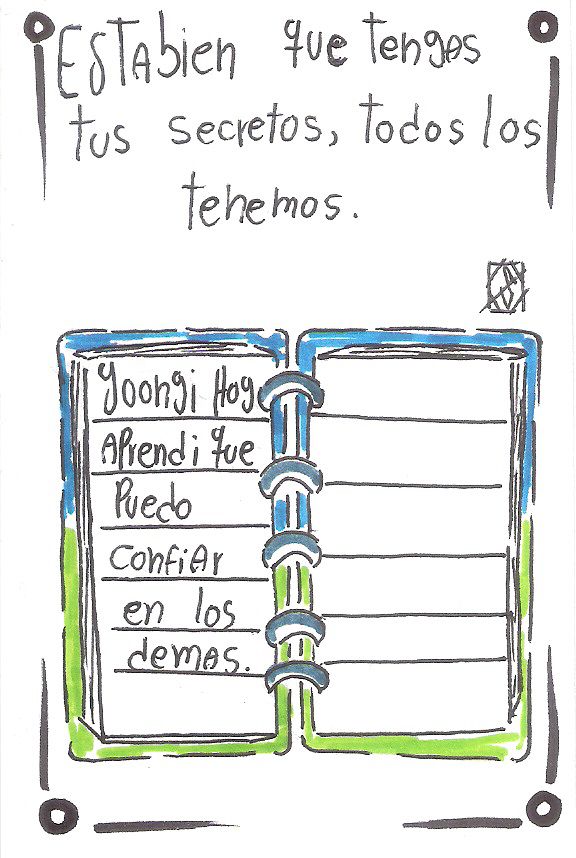 EsTAbien que tengas
tus secretos, todos los
tenemos.
Yoongi Hoy
APrendi que
Puedo
confiAr
en los
demas.